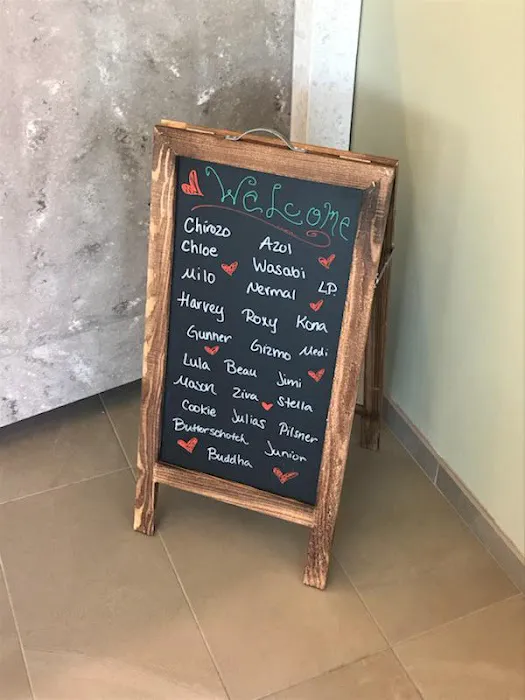 Welcome
Chirozo
Azul
Chloe
Wasabi
L.P.
Milo
Nermal
Harvey
Roxy
Kona
Gunner
Gizmo
Medi
Lula
Beau
Jimi
Mason
Ziva
Stella
Cookie
Julias
Pilsner
Butterschotch
Junior
Buddha